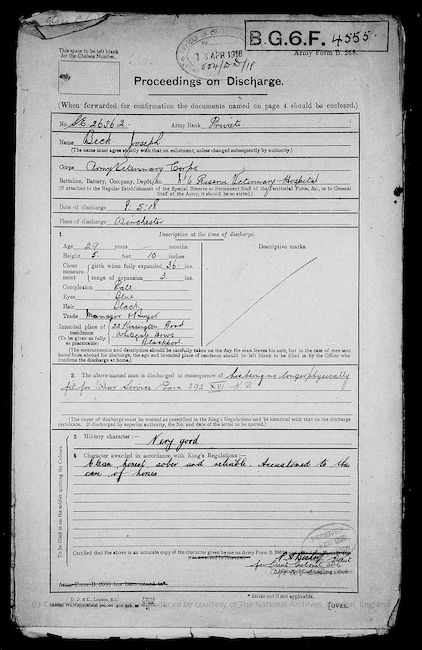 This space to be left blank
for the Chelsea Number.
APR 1918
B.G.6.F. 4555.
Army Form B. 268.
Proceedings on Discharge.
(When forwarded for confirmation the documents named on page 4 should be enclosed.)
No. SE 26362 Army Rank Private
Name Beck Joseph
(The name must agree with that on enlistment, unless changed subsequently by authority.)
Corps Army Veterinary Corps
Battalion, Battery, Company, Depôt, &c. No 6 Reserve Veterinary Hospital
(If attached to the Regular Establishment of the Special Reserve or Permanent Staff of the Territorial Force, &c., or to General
Staff of the Army, it should be so stated.)
Date of discharge 8.5.18
Place of discharge Winchester
1. Description at the time of discharge.
Age 29 years months
Height 5 feet 10 inches
Chest measurement
girth when fully expanded 36 ins.
range of expansion 3 ins.
Descriptive marks.
Complexion
Eyes Blue
Hair Black
Trade Manager & Buyer
Intended place of residence
(To be given as fully as practicable)
22 Road
Blackpool
(The measurements and description should be carefully taken on the day the man leaves his unit, but in the case of men sent
home from abroad for discharge, the age and intended place of residence should be left blank to be filled in by the Officer who
confirms the discharge at home.)
2. The above-named man is discharged in consequence of his being no longer physically
fit for War Service Para 392 XVI K R
(The cause of discharge must be worded as prescribed in the King's Regulations and be identical with that on the discharge
certificate. If discharged by superior authority, the No. and date of the letter to be quoted.)
To be filled in on the soldier quitting the Colours.
3. Military character:— Very good
4. Character awarded in accordance with King's Regulations:—
Clean honest sober and reliable. Accustomed to the
care of horses
RECEIVED
Certified that the above is an accurate copy of the character given by me on Army Form B. 2067
Army Form B. 2088 has been issued to*
* Strike out if not applicable.
[OVER.